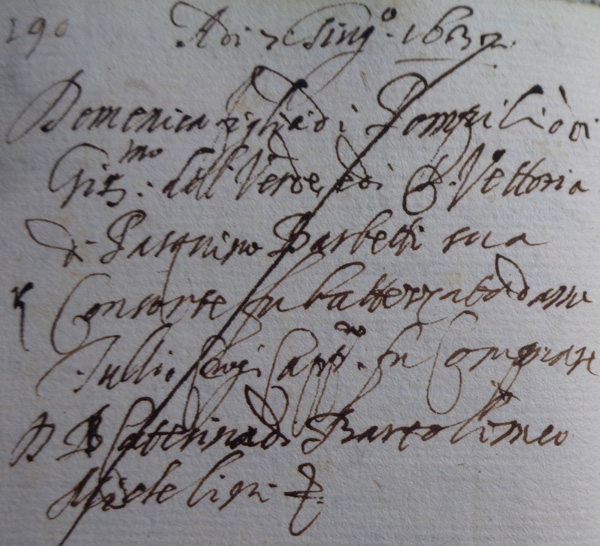 290
Adi 7 Giug.o 1632
Domenica figlia di Pompilio di
Gir.mo dell Verde, e di D. Vettoria
di Pasquino Barbetti sua
Consorte fu battezzata da me
Tullio Cap.no fu Compare
D. Caterina di Bartolomeo
Michelini